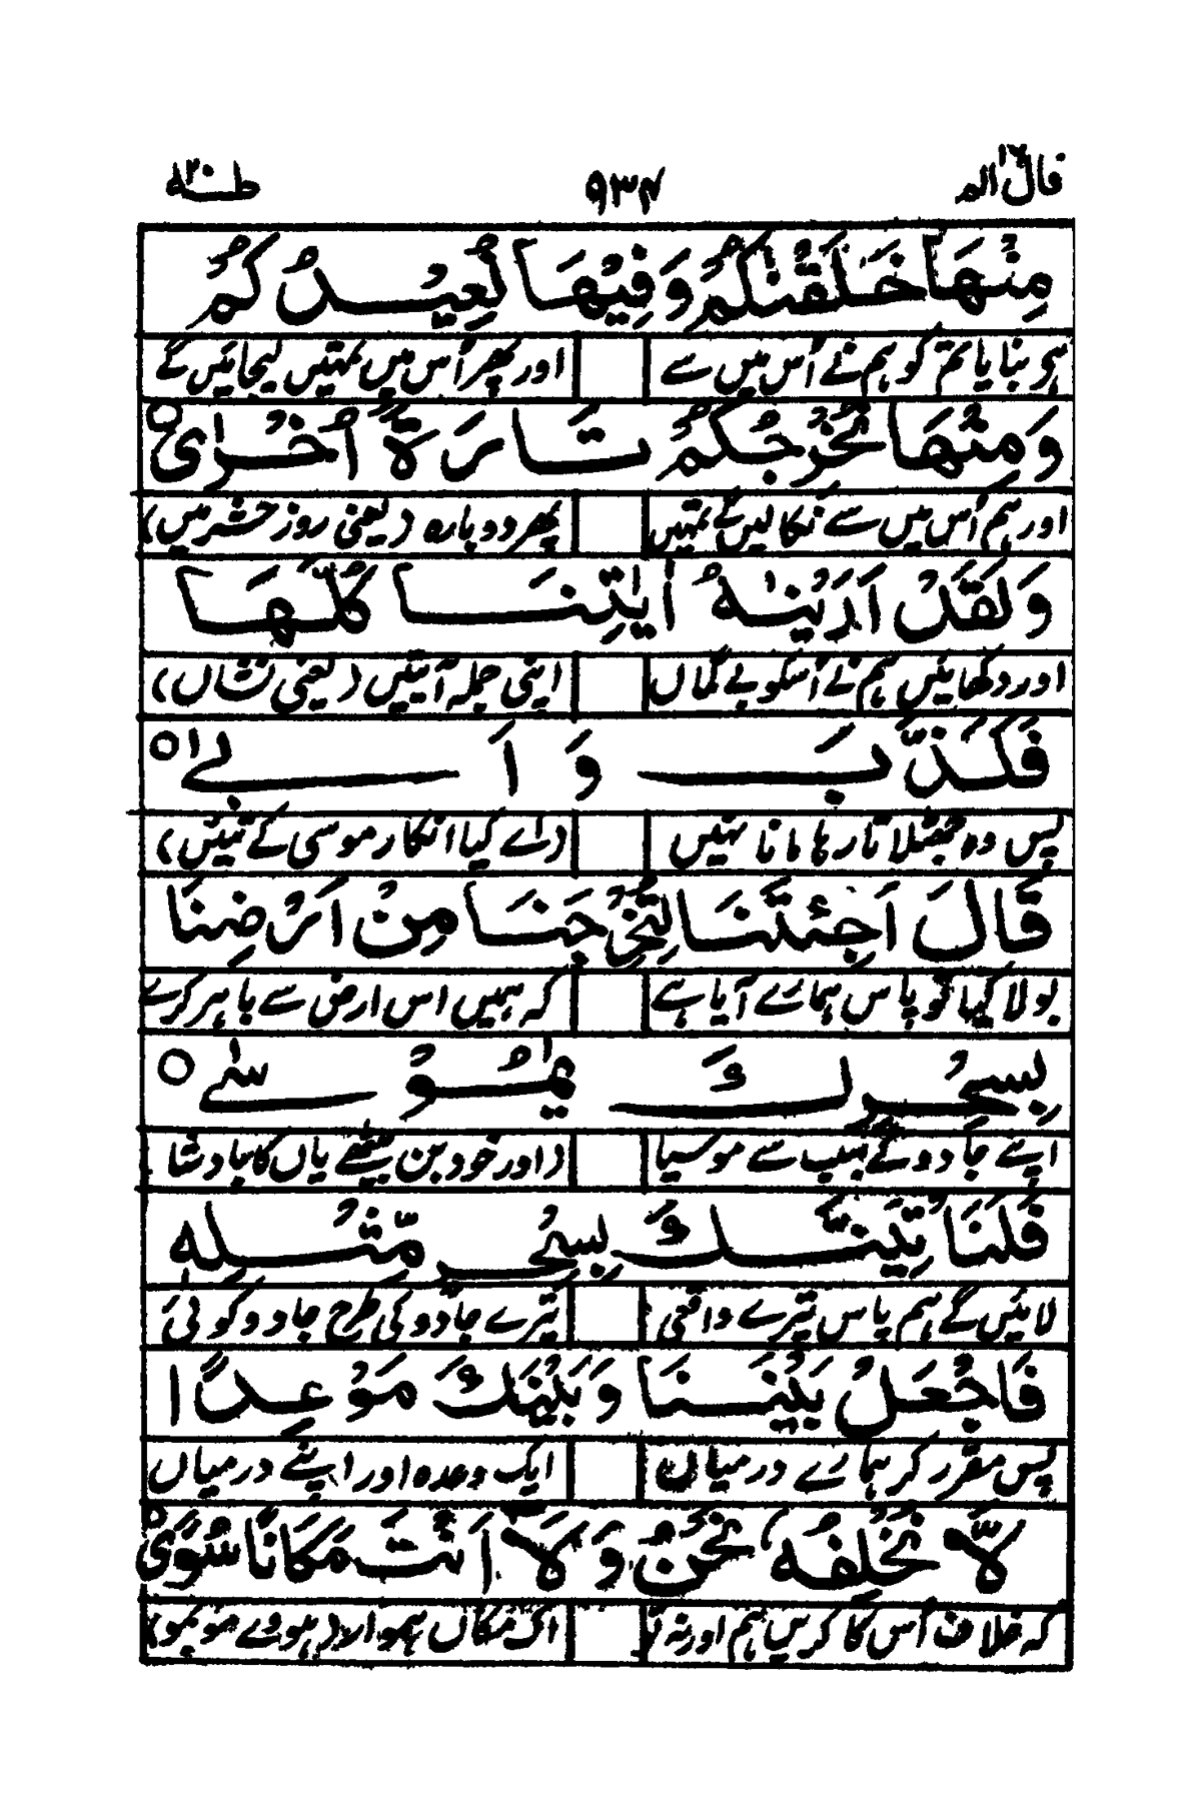 قال الم ۱۶
۹۳۴
طٰهٰ ۲۰
مِنْهَا خَلَقْنٰكُمْ وَفِيْهَا نُعِيْدُكُمْ
ہی بنایا تم کو ہم نے اُس میں سے اور پھر اُس میں تمہیں لیجائیں گے
وَمِنْهَا نُخْرِجُكُمْ تَارَةً اُخْرٰى ○
اور ہم اُس میں سے نکالیں گے تمہیں پھر دوبارہ (یعنی روز حشر میں)
وَلَقَدْ اَرَيْنٰهُ اٰيٰتِنَا كُلَّهَا
اور دکھائیں ہم نے اُسکو بے گماں اپنی جملہ آیتیں (یعنی نشاں)
فَكَذَّبَ وَ اَبٰى ○
پس وہ جھٹلاتا رہا مانا نہیں (اے کیا انکار موسی کے تئیں)
قَالَ اَجِئْتَنَا لِتُخْرِجَنَا مِنْ اَرْضِنَا
بولا کیا تو پاس ہمارے آیا ہے کہ ہمیں اس ارض سے باہر کرے
بِسِحْرِكَ يٰمُوْسٰى ○
اپنے جادو کے سبب سے موسیا (اور خود بن بیٹھے یاں کا بادشا
فَلَنَاْتِيَنَّكَ بِسِحْرٍ مِّثْلِهٖ
لائیں گے ہم پاس تیرے واقعی تیرے جادو کی طرح جادو کوئی
فَاجْعَلْ بَيْنَنَا وَبَيْنَكَ مَوْعِدًا
پس مقرر کر ہمارے درمیاں ایک وعدہ اور اپنے درمیاں
لَّا نُخْلِفُهٗ نَحْنُ وَلَآ اَنْتَ مَكَانًا سُوًى ○
کہ خلاف اُس کا کریں ہم اور نہ تو اک مکاں ہموار (ہووے مو بمو)